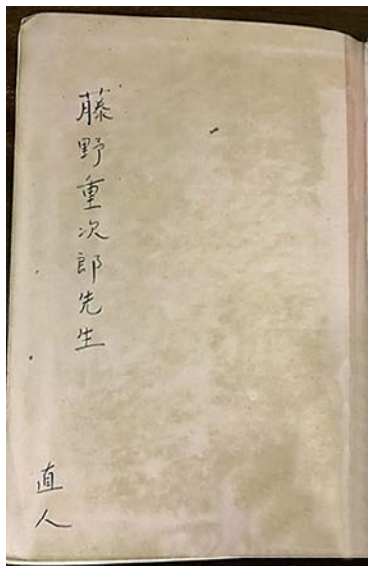 藤野重次郎先生
直人